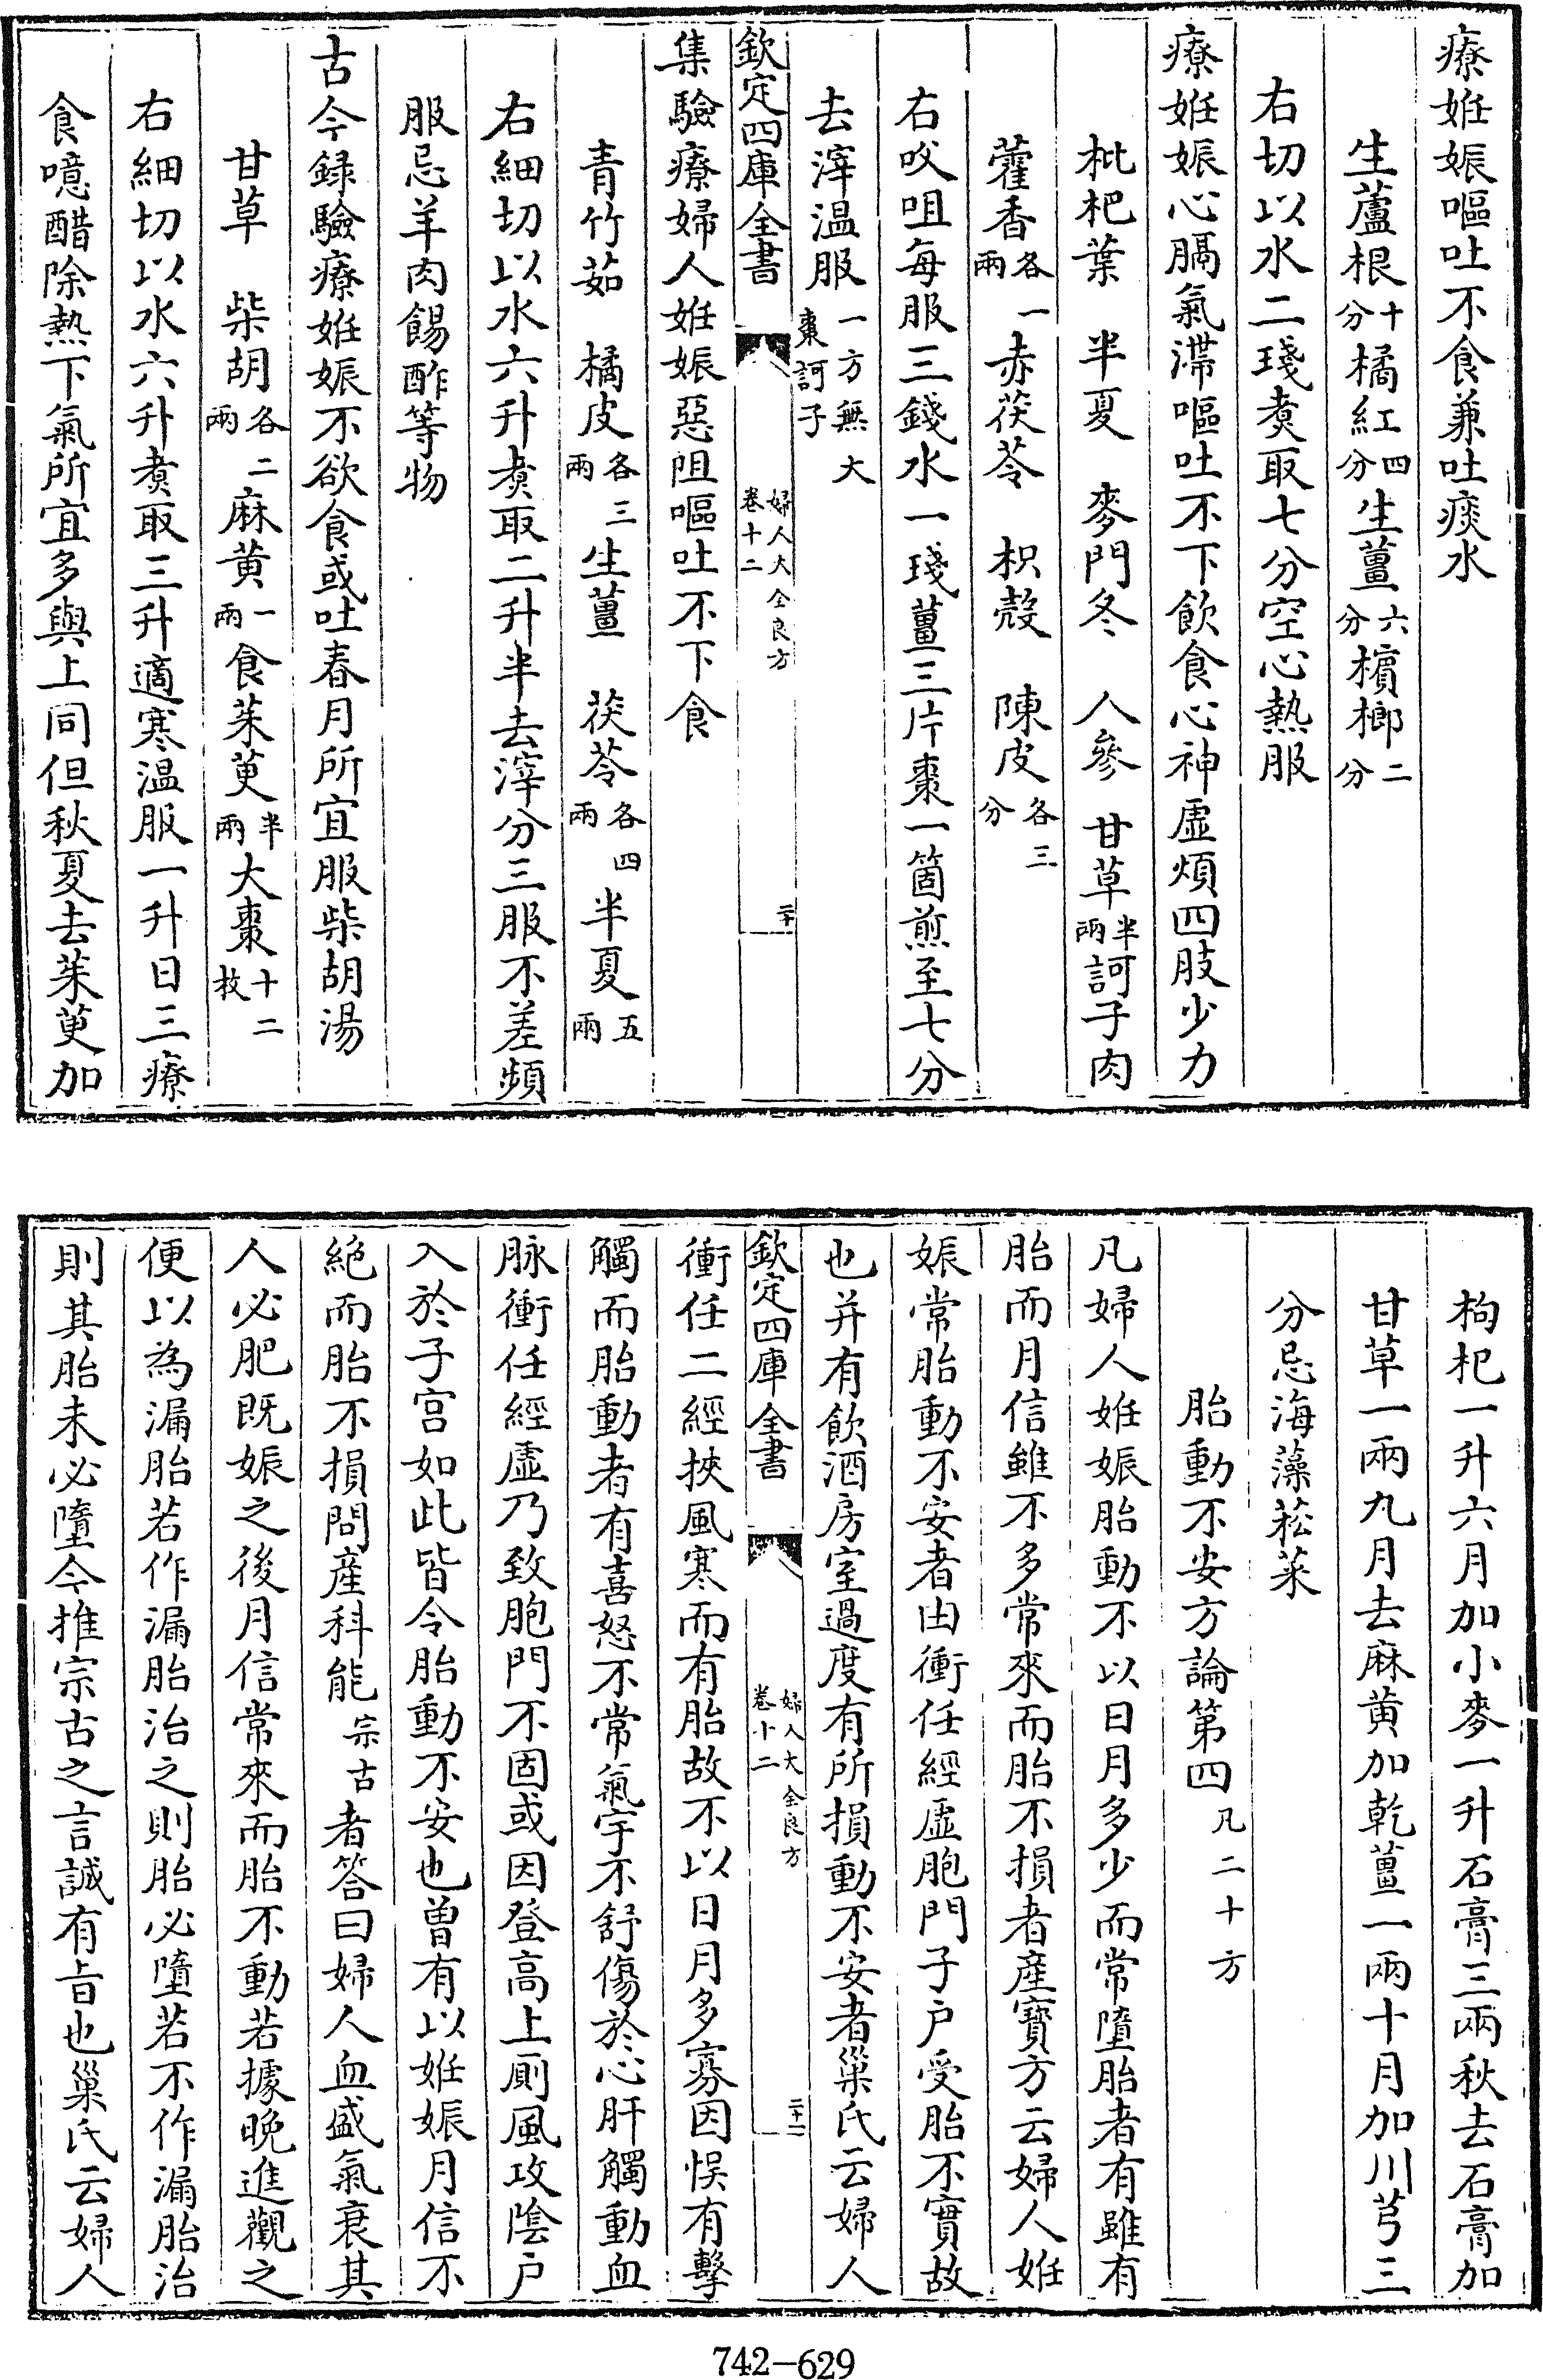 療妊娠嘔吐不食兼吐痰水
生蘆根十分橘紅四分生薑六分檳榔二分
右切以水二琖煑取七分空心熱服
療妊娠心膈氣滯嘔吐不下飲食心神虛煩四肢少力
枇杷葉　半夏　麥門冬　人參　甘草半兩訶子肉
藿香各一兩赤茯苓　枳殼　陳皮各三分
右㕮咀每服三錢水一琖薑三片棗一箇煎至七分
去滓温服一方無大棗訶子
欽定四庫全書　婦人大全良方卷十二　二十
集驗療婦人妊娠惡阻嘔吐不下食
青竹茹　橘皮各三兩生薑　茯苓各四兩半夏五兩
右細切以水六升煑取二升半去滓分三服不差頻
服忌羊肉餳酢等物
古今録驗療妊娠不欲食或吐春月所宜服柴胡湯
甘草　柴胡各二兩麻黄一兩食茱萸半兩大棗十二枚
右細切以水六升煑取三升適寒温服一升日三療
食噫醋除熱下氣所宜多與上同但秋夏去茱萸加
枸杞一升六月加小麥一升石膏三兩秋去石膏加
甘草一兩九月去麻黄加乾薑一兩十月加川芎三
分忌海藻菘菜
胎動不安方論第四凡二十方
凡婦人妊娠胎動不以日月多少而常墮胎者有雖有
胎而月信雖不多常來而胎不損者産寳方云婦人妊
娠常胎動不安者由衝任經虛胞門子户受胎不實故
也并有飲酒房室過度有所損動不安者巢氏云婦人
欽定四庫全書　婦人大全良方卷十二　二十一
衝任二經挾風寒而有胎故不以日月多寡因悞有擊
觸而胎動者有喜怒不常氣宇不舒傷於心肝觸動血
脉衝任經虛乃致胞門不固或因登高上厠風攻陰户
入於子宮如此皆令胎動不安也曾有以妊娠月信不
絶而胎不損問産科能宗古者答曰婦人血盛氣衰其
人必肥既娠之後月信常來而胎不動若據晚進觀之
便以為漏胎若作漏胎治之則胎必墮若不作漏胎治
則其胎未必墮今推宗古之言誠有旨也巢氏云婦人
742-629